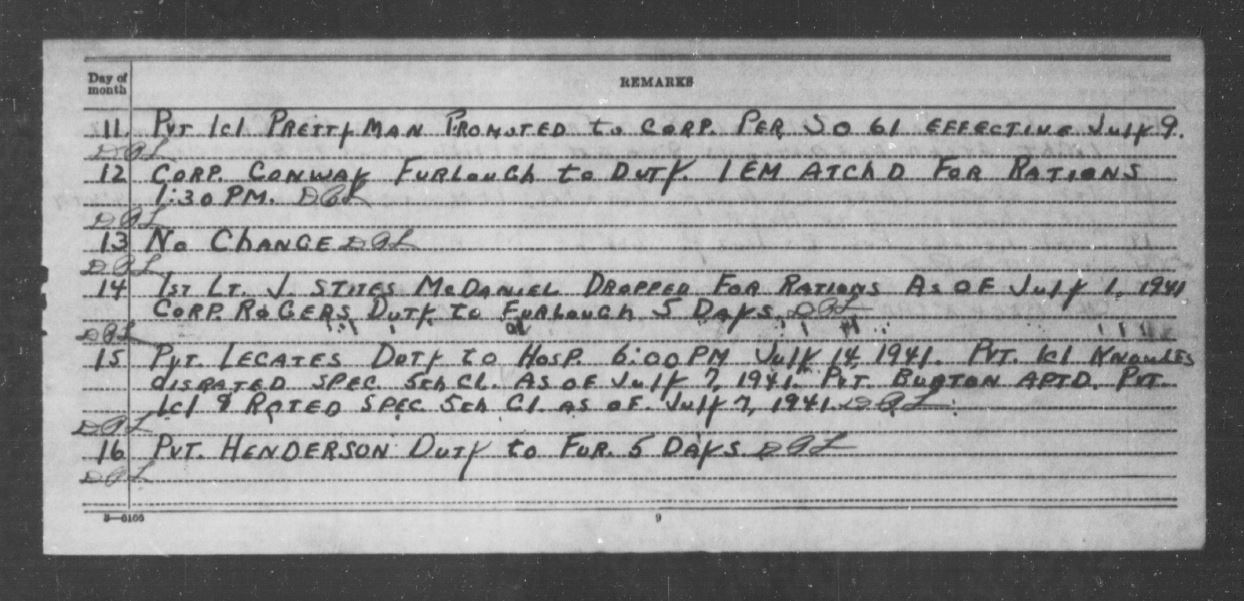 Day of month REMARKS
11. Pvt 1cl Prettyman Promoted to Corp. Per SO 61 effective July 9.
DGL
12 Corp. Conway Furlough to Duty. 1 EM Atchd For Rations
1:30 PM. DGL
DGL
13 No Change DGL
DGL
14 1st Lt. J Stites McDaniel Dropped For Rations As of July 1, 1941
Corp. Rogers Duty to Furlough 5 Days DGL
DGL
15 Pvt. Lecates Duty to Hosp. 6:00 PM July 14, 1941. Pvt. 1cl Knowles
disrated Spec. 5th Cl. As of July 7, 1941. Pvt. Burton Aptd. Pvt.
1cl & Rated Spec 5th Cl. as of. July 7, 1941. DGL
DGL
16 Pvt. Henderson Duty to Fur. 5 Days DGL
DGL
3—6106 9